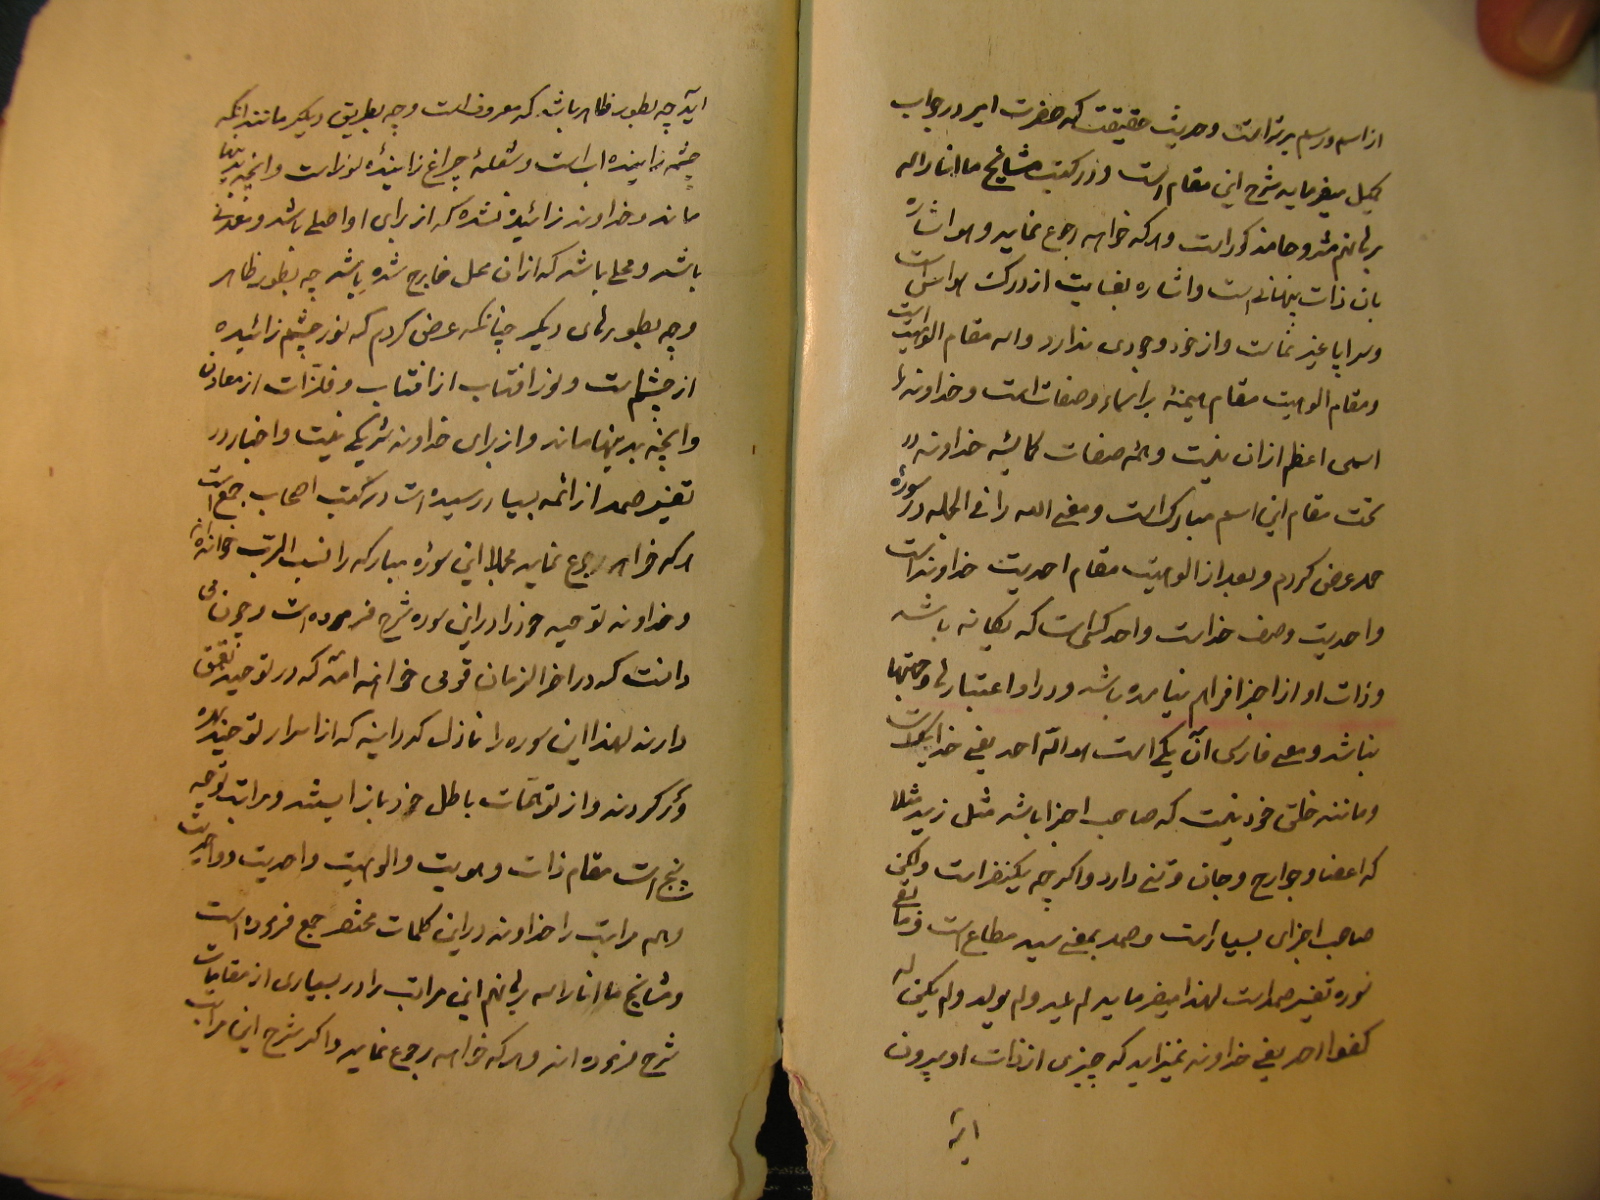 از اسم و رسم برتر است و حدیث حقیقت که حضرت امیر در جواب
کمیل میفرماید شرح این مقام است و در کتب مشایخ ما انار الله
برهانهم مشروحا مذکور است و هر که خواهد رجوع نماید و هو اشاره
بان ذات پنهانی است و اشاره بغایب از درک حواس است
و سراپا غیر نما است و از خود وجودی ندارد و الله مقام الوهیت است
و مقام الوهیت مقام هیمنه بر اسماء و صفات است و خداوند را
اسمی اعظم از ان نیست و همه صفات کمالیه خداوند در
تحت مقام این اسم مبارک است و معنی الله را فی الجمله در سوره
حمد عرض کردم و بعد از الوهیت مقام احدیت خداوند است
و احدیت وصف خداست و احد کسی است که یگانه باشد
و ذات او از اجزا فراهم نیامده باشد و در او اعتبارها و جهتها
نباشد و معنی فارسی آن یکی است هو الله احد یعنی خدا یکی است
و مانند خلق خود نیست که صاحب اجزا باشد مثل زید مثلا
که اعضا و جوارح و جان و تنی دارد و اگر چه یکنفر است ولکن
صاحب اجزای بسیار است و صمد بمعنی سید مطاع است و مابقی
سوره تفسیر صمد است لهذا میفرماید لم یلد و لم یولد و لم یکن له
کفوا احد یعنی خداوند نمیزاید که چیزی از ذات او بیرون
اید
اید چه بطور ظاهر باشد که معروف است و چه بطریق دیگر مانند انکه
چشمه زاینده اب است و شعله چراغ زاینده نور است و انچه بدینها
ماند و خداوند زائیده نشده که از برای او اصلی باشد و معدنی
باشد و محلی باشد که از ان محل خارج شده باشد چه بطور ظاهر
و چه بطورهای دیگر چنانکه عرض کردم که نور چشم زائیده
از چشم است و نور افتاب از افتاب و فلزات از معادن
و انچه بدینها ماند و از برای خداوند شریکی نیست و اخبار در
تفسیر صمد از ائمه بسیار رسیده است در کتب اصحاب جمع است
هر که خواهد رجوع نماید مجملا این سوره مبارکه را نسب الرب خوانده‌اند
و خداوند توحید خود را در این سوره شرح فرموده است و چون می
دانست که در اخر الزمان قومی خواهند امد که در توحید تعمق
دارند لهذا این سوره را نازل گردانید که از اسرار توحید بهره
ور گردند و از توهمات باطل خود باز ایستند و مراتب توحید
پنج است مقام ذات و هویت و الوهیت و احدیت و واحدیت
و هم مراتب را خداوند در این کلمات مختصر جمع فرموده است
و مشایخ ما انار الله برهانهم این مراتب را در بسیاری از مقامات
شرح فرموده اند و هر که خواهد رجوع نماید و اگر شرح این مراتب